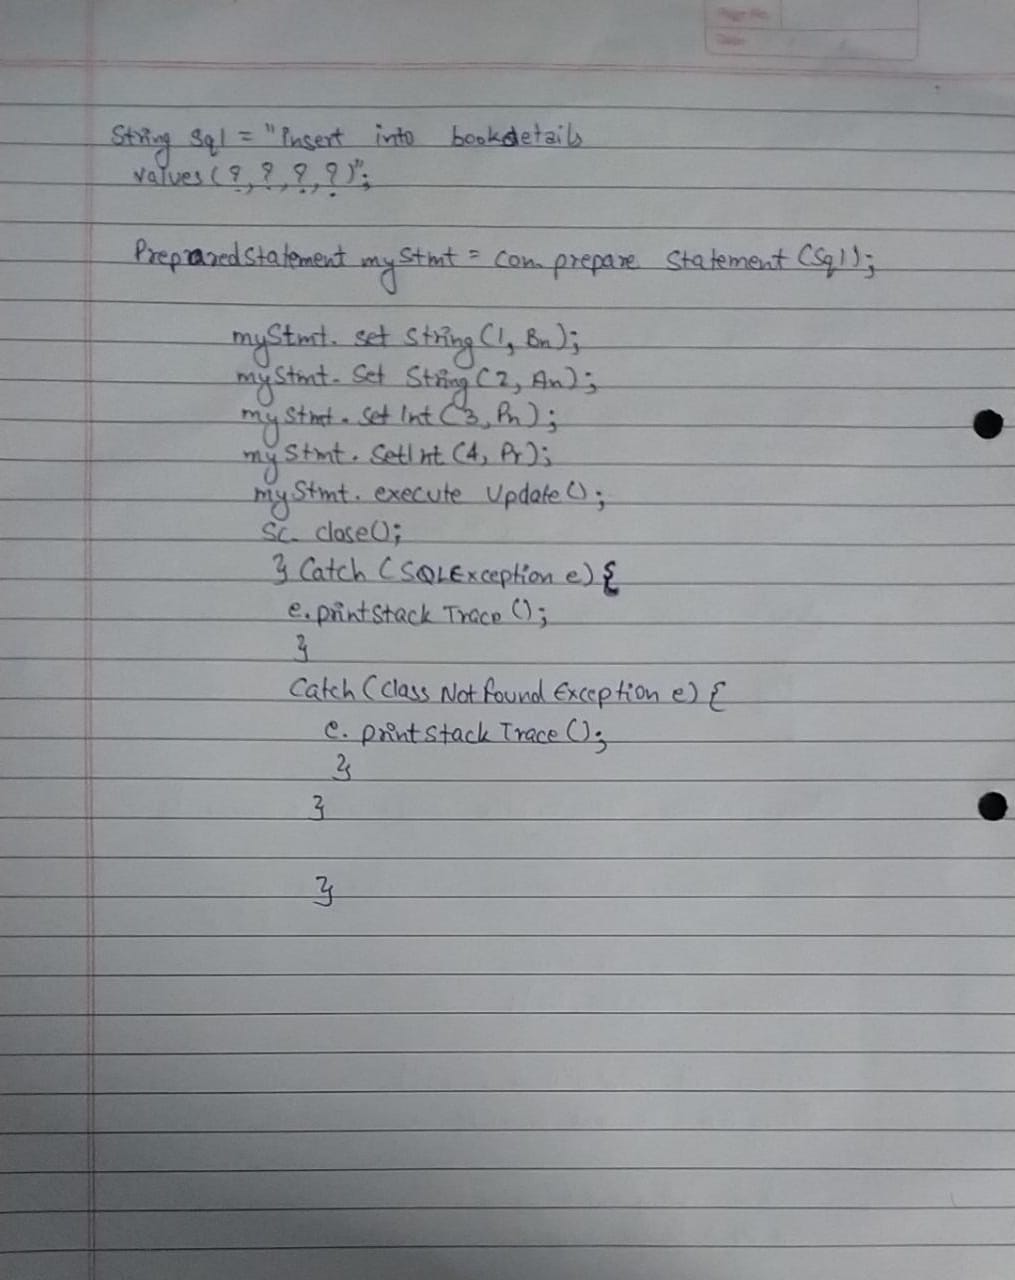 Page No.
Date
String sql = "Insert into bookdetails
values (?, ?, ?, ?)";
PreparedStatement myStmt = con. prepare Statement (sql);
myStmt. set String (1, Bn);
myStmt. Set String (2, An);
myStmt. Set Int (3, Pn);
myStmt. SetInt (4, Pr);
myStmt. execute Update ();
Sc. close();
} Catch (SQLException e) {
e. printStack Trace ();
}
Catch (Class Not found Exception e) {
e. printStack Trace ();
}
}
}